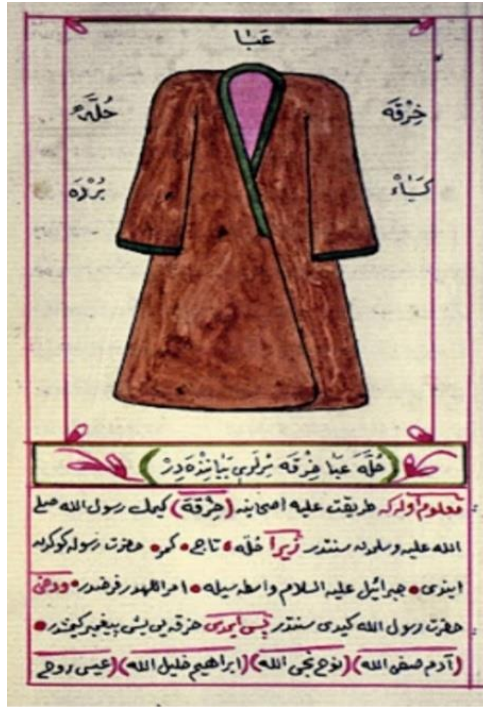 عَبَا
خِرْقَه
حُلَّه
كِسَاءْ
بُرْدَه
حُلَّه عَبَا خِرْقَه سِرلَرى بَيَانِنْدَه دِرْ
معلوم اوله كه طريقت عليه اصحابنه (خِرْقَة) كيمك رسول الله صلى
الله عليه وسلمدن سنتدر زيرا حُلّه • تاج • كمر • حضرت رسوله كوكدن
ايندى • جبرائيل عليه السلام واسطه سيله • امر اللهدر فرضدر • ودخى
حضرت رسول الله كيدى سنتدر پس ايمدى خرقه يى بش پيغمبر كيمشدر •
(آدم صفى الله) (نوح نجى الله) (ابراهيم خليل الله) (عيسى روح